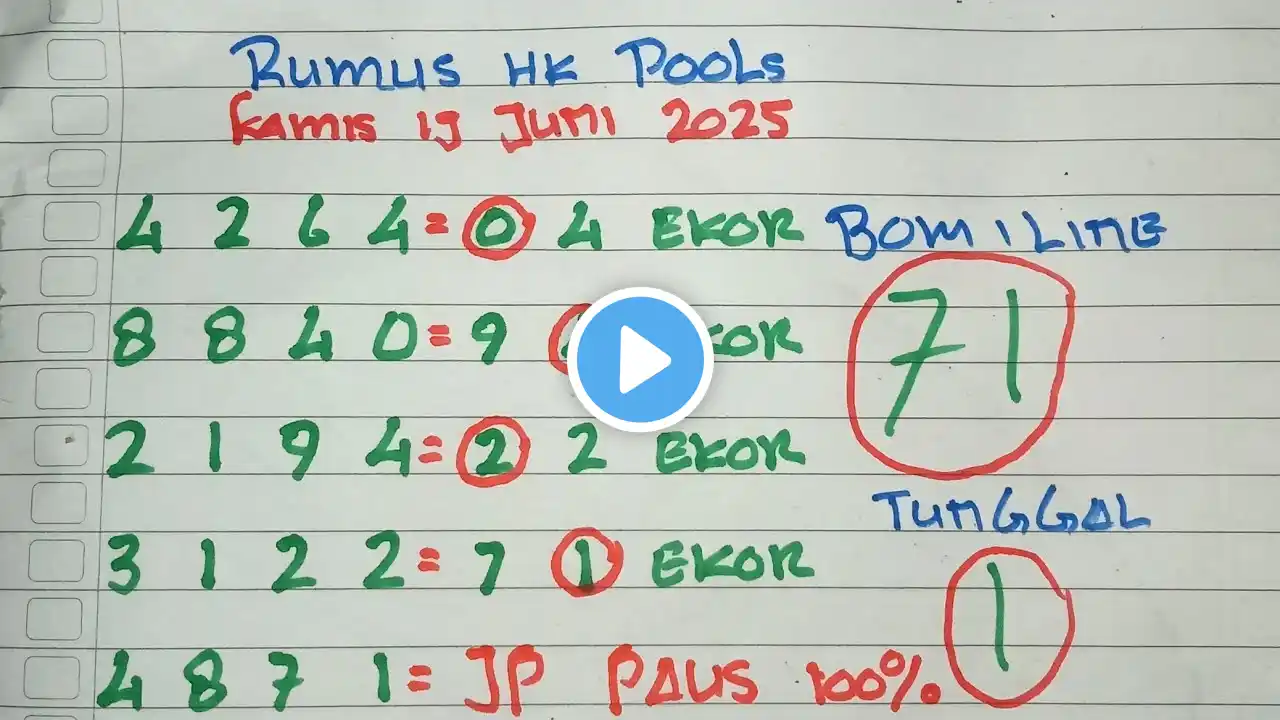 RUMUS HK POOLS
KAMIS 19 JUNI 2025
4 2 6 4 = 0 4 EKOR
8 8 4 0 = 9
2 1 9 4 = 2 2 EKOR
3 1 2 2 = 7 1 EKOR
4 8 7 1 = JP PAUS 100%
BOM 1 LINE
71
TUNGGAL
1